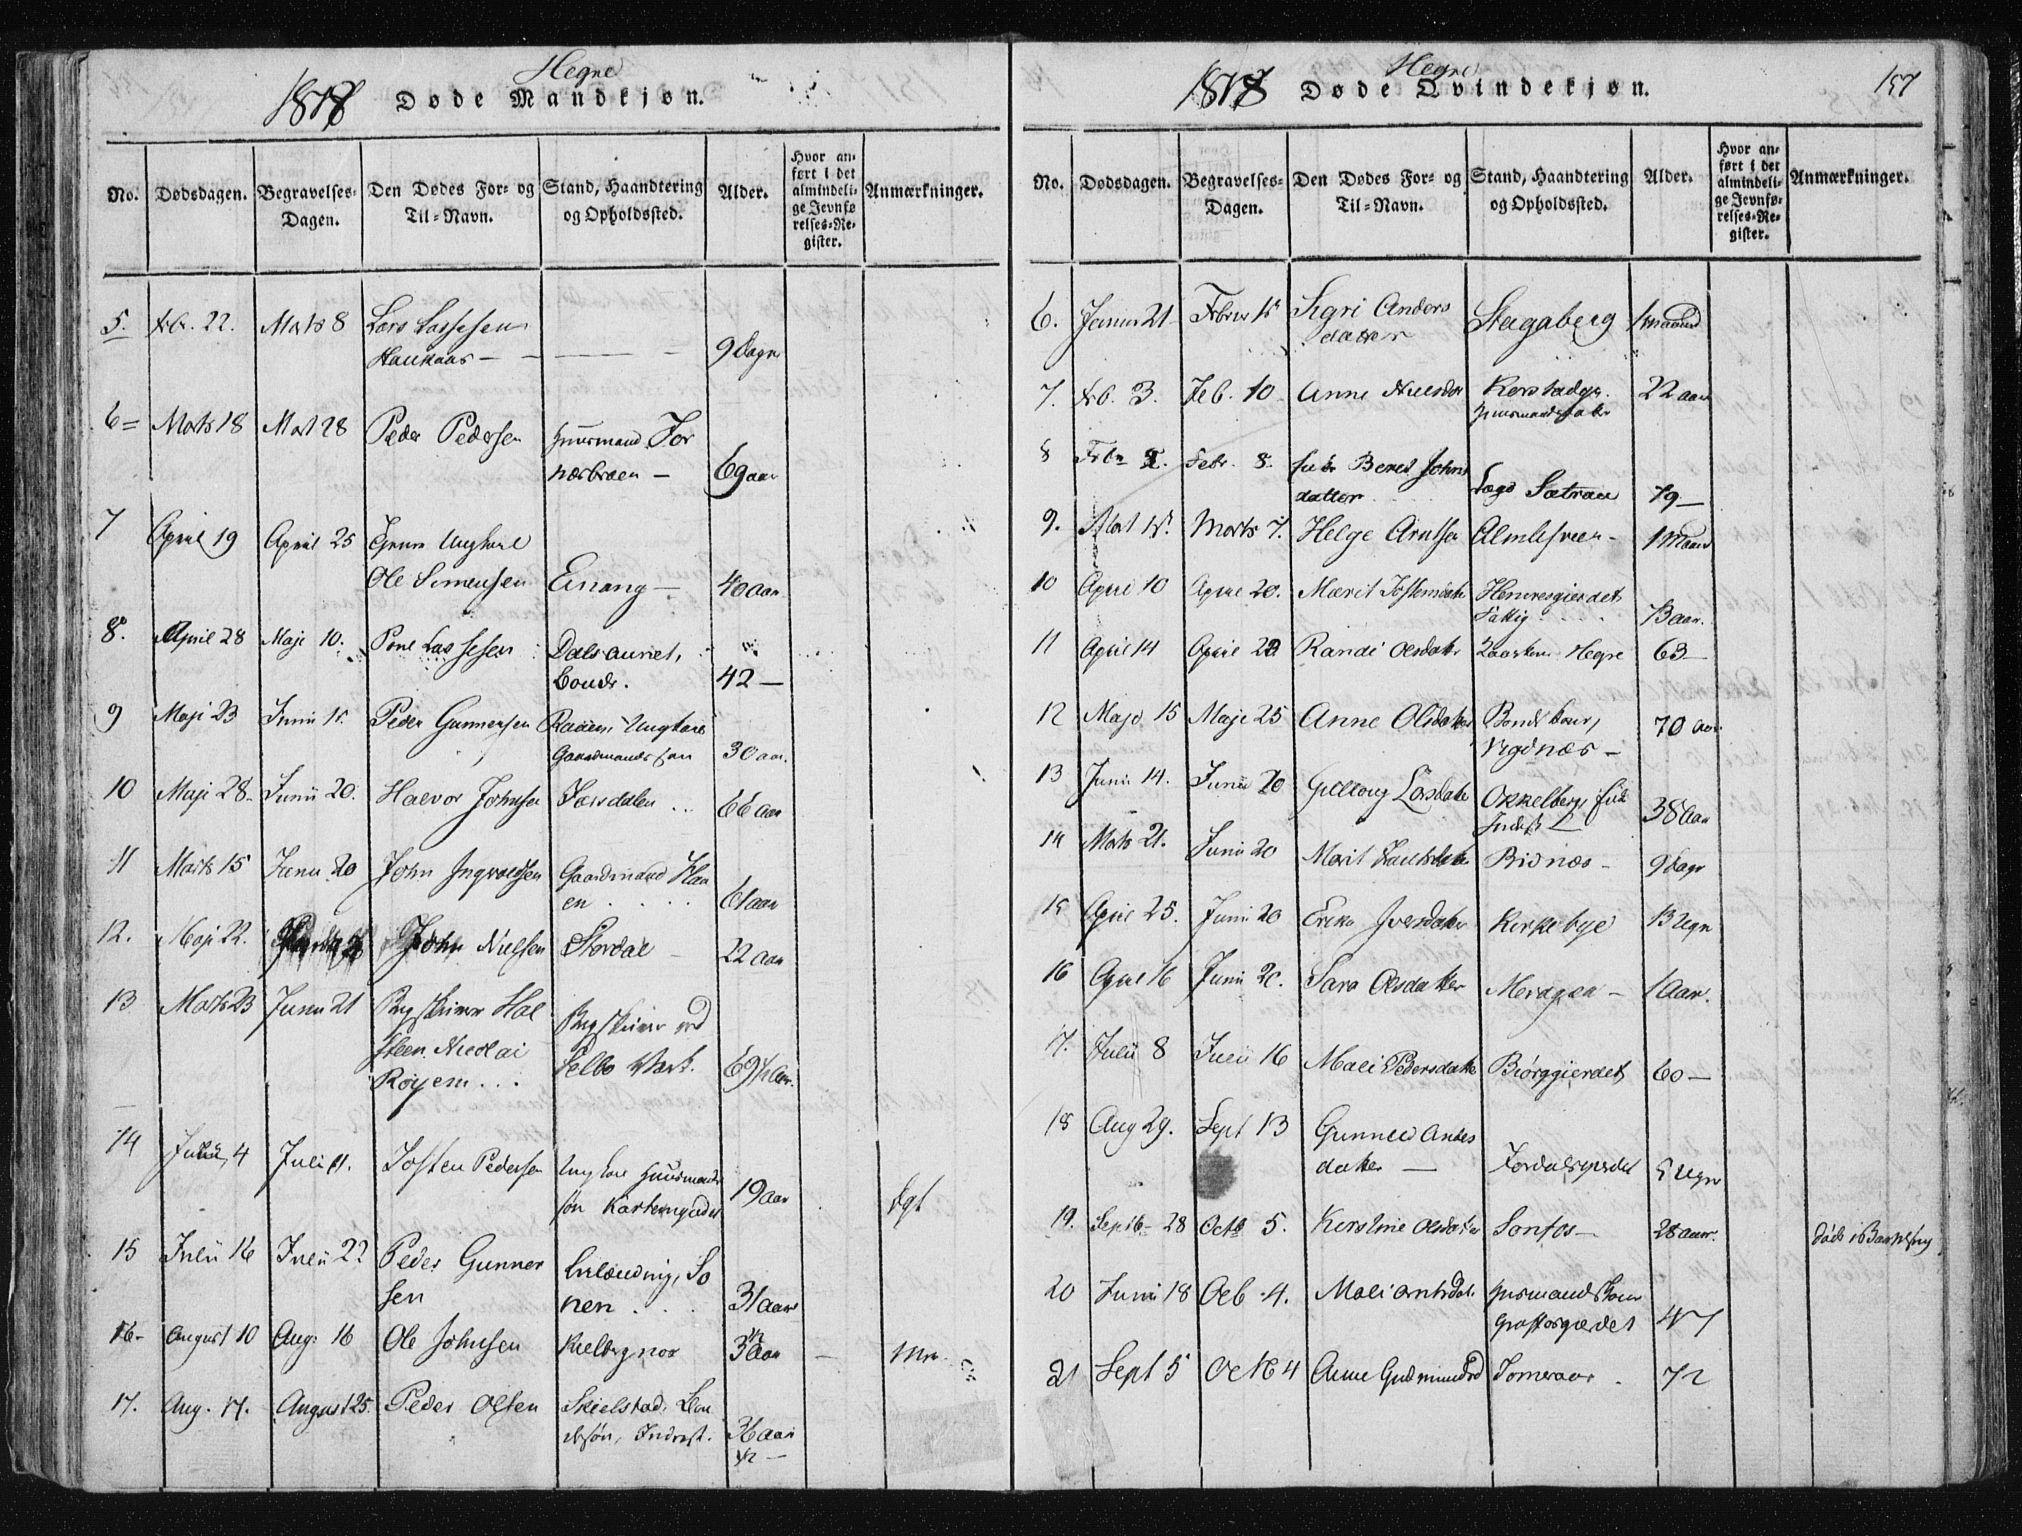 Hegne
1818 Døde Mandkjøn.
No. Dødsdagen. Begravelses-Dagen. Den Dødes For- og Til-Navn. Stand, Haandtering og Opholdssted. Alder. Hvor anført i det almindelige Jevnførelses-Register. Anmærkninger.
5. Feb. 22. Marts 8 Lars Lassesen
Haukaas — — — 9 Dage
6 = Marts 18 Mart 28 Peder Pedersen Huusmand For
næsbraen — 69 aar
7 April 19 April 25 Ungkarl
Ole Simensen Einang — 40 aar
8. April 28 Maji 10. Lassesen Dalsaunet,
Bonde. 42 —
9 Maji 23 Junii 15. Peder Gunnersen Ungkarl
Gaardmands søn 30 aar.
10 Maji 28. Junii 20. Halvor Johnsen Forsdalen .. 66 aar
11 Marts 15 Junii 20 John Ingvoldsen Gaardmand Haa
en . . . . 61 aar
12. Maji 22. John Nielsen Stordal — 22 aar
13 Marts 23 Junii 21 Bergskriver Hol
steen Nicolai Bergskriver ved
Røyem ... Selbo Værk. 69 1/2 aar.
14 Julii 4 Juli 11. Josten Pedersen Ungkarl Huusmands
søn 19 aar Dgt
15 Julii 16 Julii 22 Peder Gunner
sen Inlænding, So
nen . . . 31 aar
16. August 10 Aug. 16 Ole Johnsen 3 1/2 aar —
17. Aug. 17. August 25. Peder Olsen Skielstad, Bon
desøn, Indrest. 36 aar
1/2 —
Hegne
1818 Døde Qvindekjøn. 157
No. Dødsdagen. Begravelses-Dagen. Den Dødes For- og Til-Navn. Stand, Haandtering og Opholdssted. Alder. Hvor anført i det almindelige Jevnførelses-Register. Anmærkninger.
6. Januar 21 Febru 15 Sigri Anders
datter Stagaberg 1 maaned
7. Feb. 3. Feb. 10 Anne Nielsdr 22 aar
Huusmands
8 Febr. 8. Beret Johns
datter Lægd Sætran 79 —
9. Marts 7. Helge Arntsen 1 Maaned
10 April 10 April 20. Marit Jostensdatr
Fattig . . . . 73 aar.
11 April 14 April 20 Randi Olsdatr Hegre 63 —
12 Majo 15 Maji 25 Anne Olsdatter Bondekone,
Vigdnæs — 70 aar
13 Junii 14. Junii 20 Gullaug Larsdatr Okkelberg
38 aar
14 Marts 21. Junii 20 Marit — 9 Dage
15 April 25. Junii 20 Iversdatter Kirkebye 13 Ugr
16 April 16 Junii 20. Sara Olsdatter Meragen — 1 Aar.
17. Julii 8 Julii 16 Mali Pedersdatter Biørggierdet 60 —
18 Aug 29. Sept 13 Gunnild Anders
datter — 5 Ugr
19. Septb. 28 Octb 5. Kerstine Olsdatter Sonfos — 28 aar. Døde i Barselseng
20 Junii 18 Octb 4. Mali Arntsdatr Husmands Kone
47
21 Sept 5 Octb 4 Anne Gudmundsd . 72